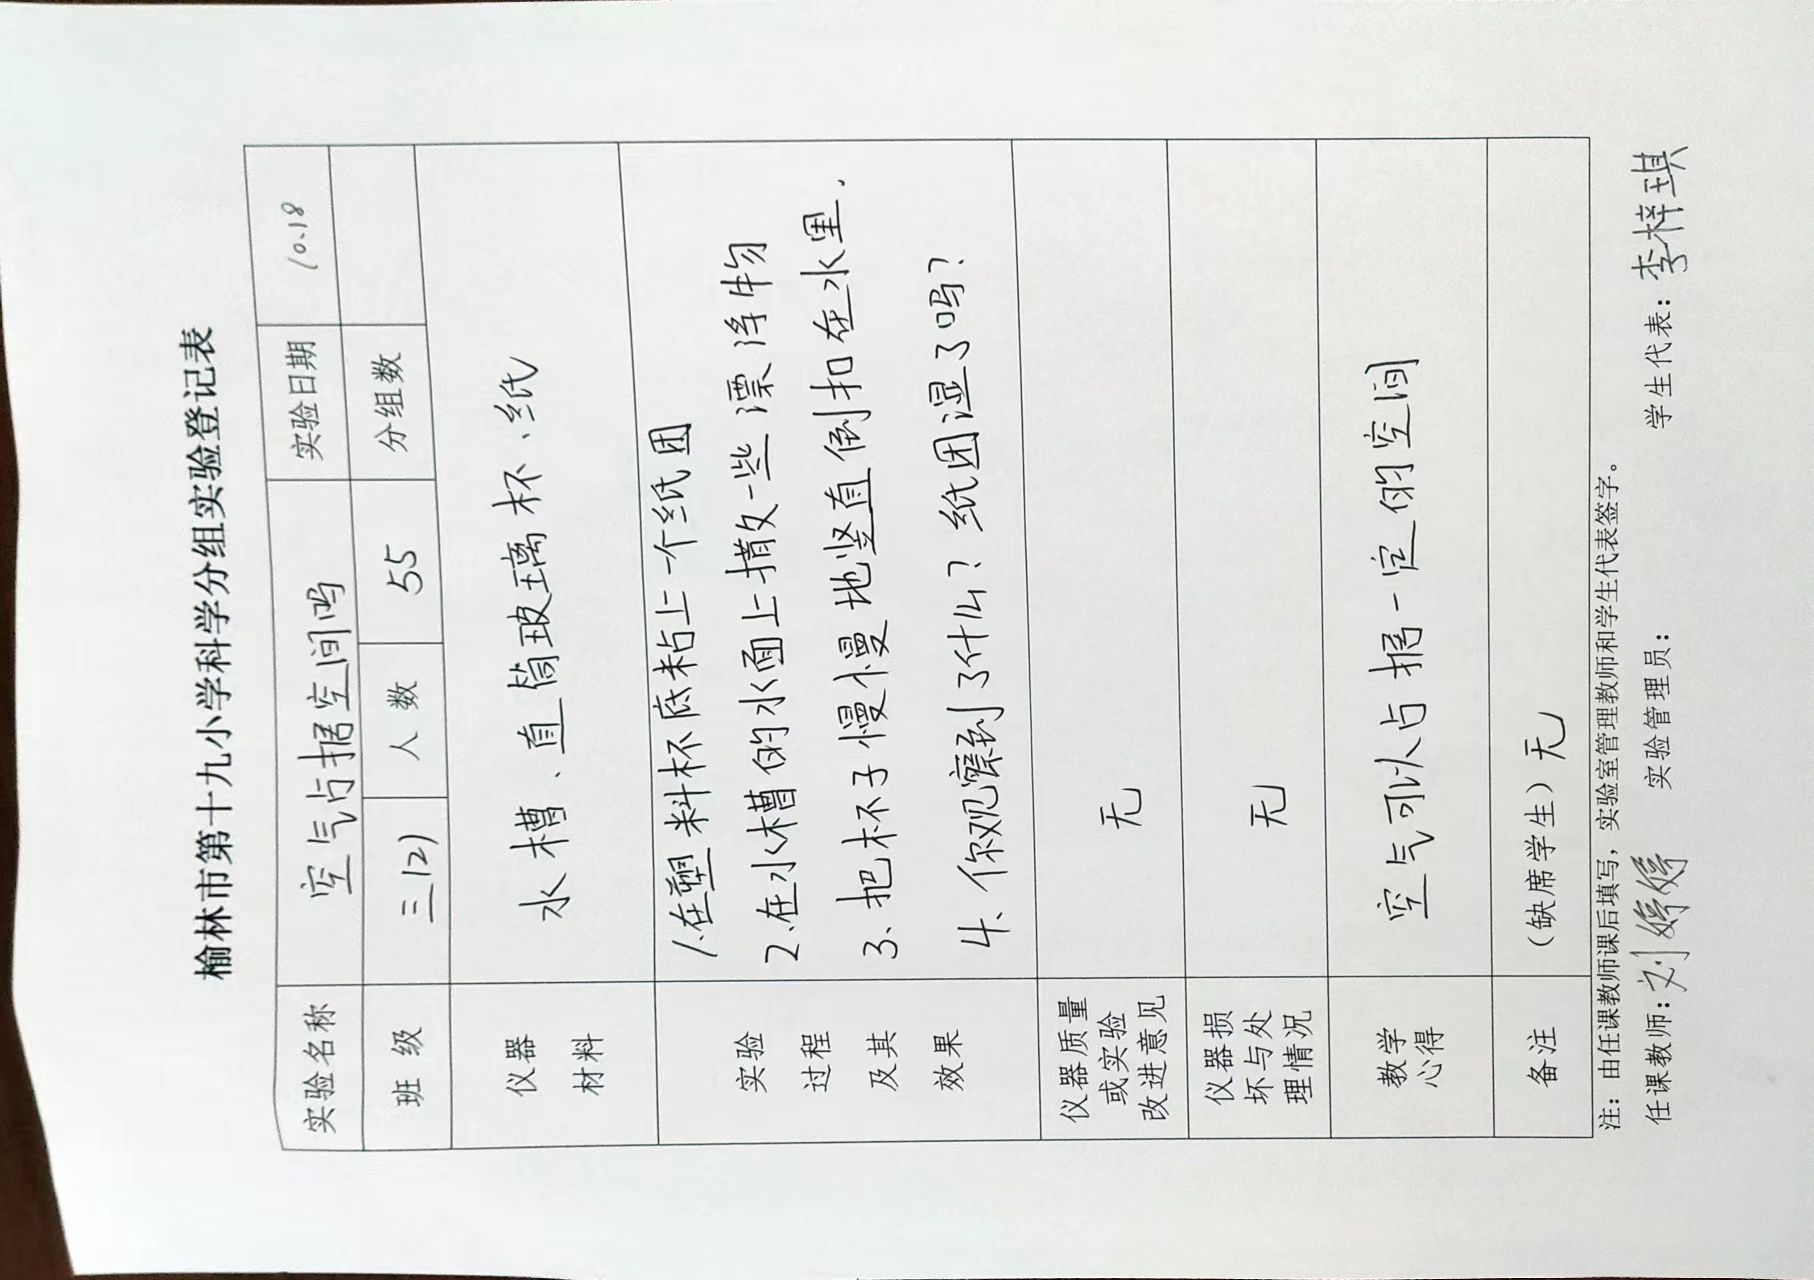 榆林市第十九小学科学分组实验登记表
实验名称 空气占据空间吗 实验日期 10.18
班 级 三(2) 人 数 55 分组数
仪器 材料 水槽、直筒玻璃杯、纸
实验 过程 及其 效果
1.在塑料杯底粘上一个纸团
2.在水槽的水面上撒一些漂浮物
3.把杯子慢慢地竖直倒扣在水里.
4、你观察到了什么?纸团湿了吗?
仪器质量 或实验 改进意见 无
仪器损 坏与处 理情况 无
教学 心得 空气可以占据一定的空间
备注 (缺席学生)无
注:由任课教师课后填写,实验室管理教师和学生代表签字。
任课教师:刘婷婷 实验管理员: 学生代表:李梓琪